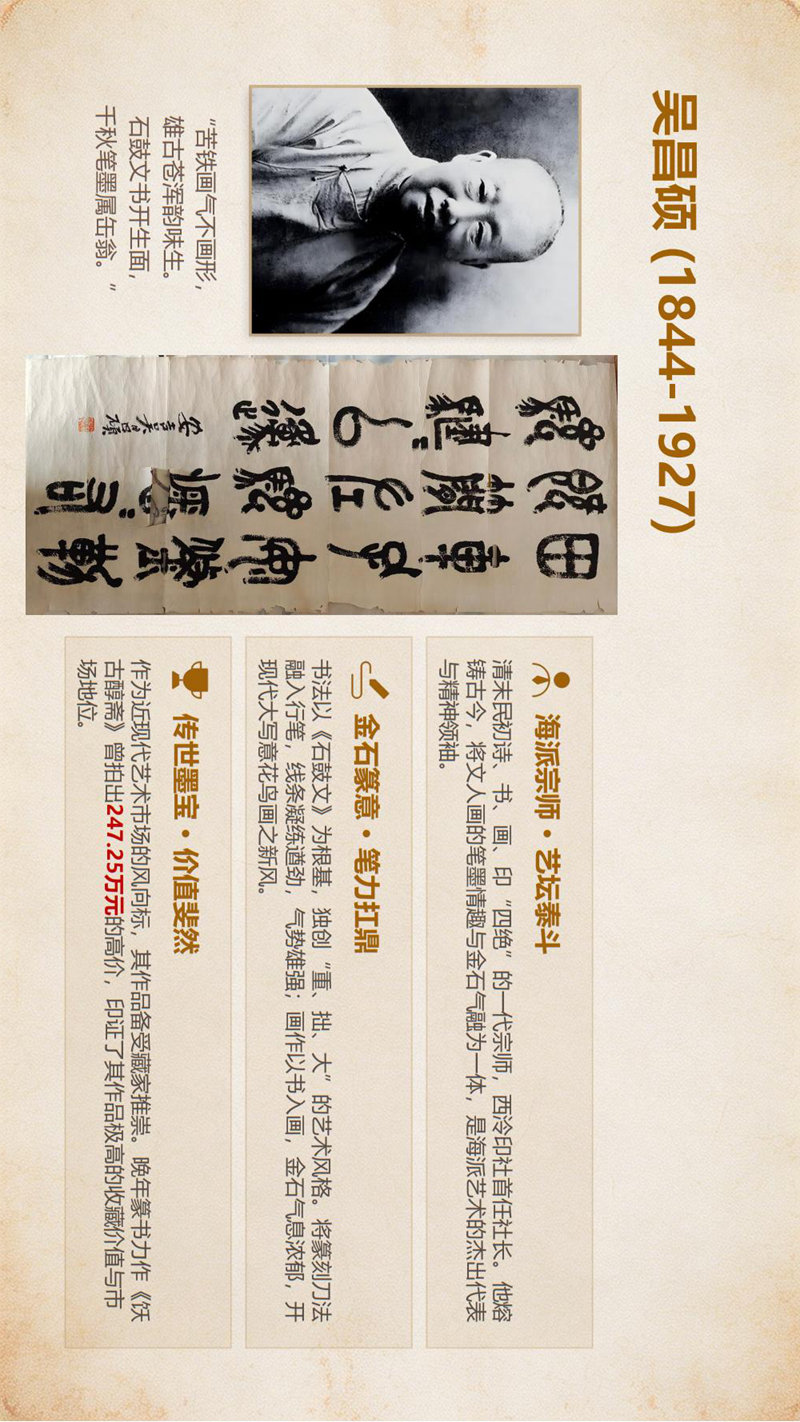 吴昌硕 (1844-1927)
“苦铁画气不画形，
雄古苍浑韵味生。
石鼓文书开生面，
千秋笔墨属缶翁。”
海派宗师·艺坛泰斗
清末民初诗、书、画、印“四绝”的一代宗师，西泠印社首任社长。他熔
铸古今，将文人画的笔墨情趣与金石气融为一体，是海派艺术的杰出代表
与精神领袖。
金石篆意·笔力扛鼎
书法以《石鼓文》为根基，独创“重、拙、大”的艺术风格。将篆刻刀法
融入行笔，线条凝练遒劲，气势雄强；画作以书入画，金石气息浓郁，开
现代大写意花鸟画之新风。
传世墨宝·价值斐然
作为近现代艺术市场的风向标，其作品备受藏家推崇。晚年篆书力作《饫
古醇斋》曾拍出247.25万元的高价，印证了其作品极高的收藏价值与市
场地位。